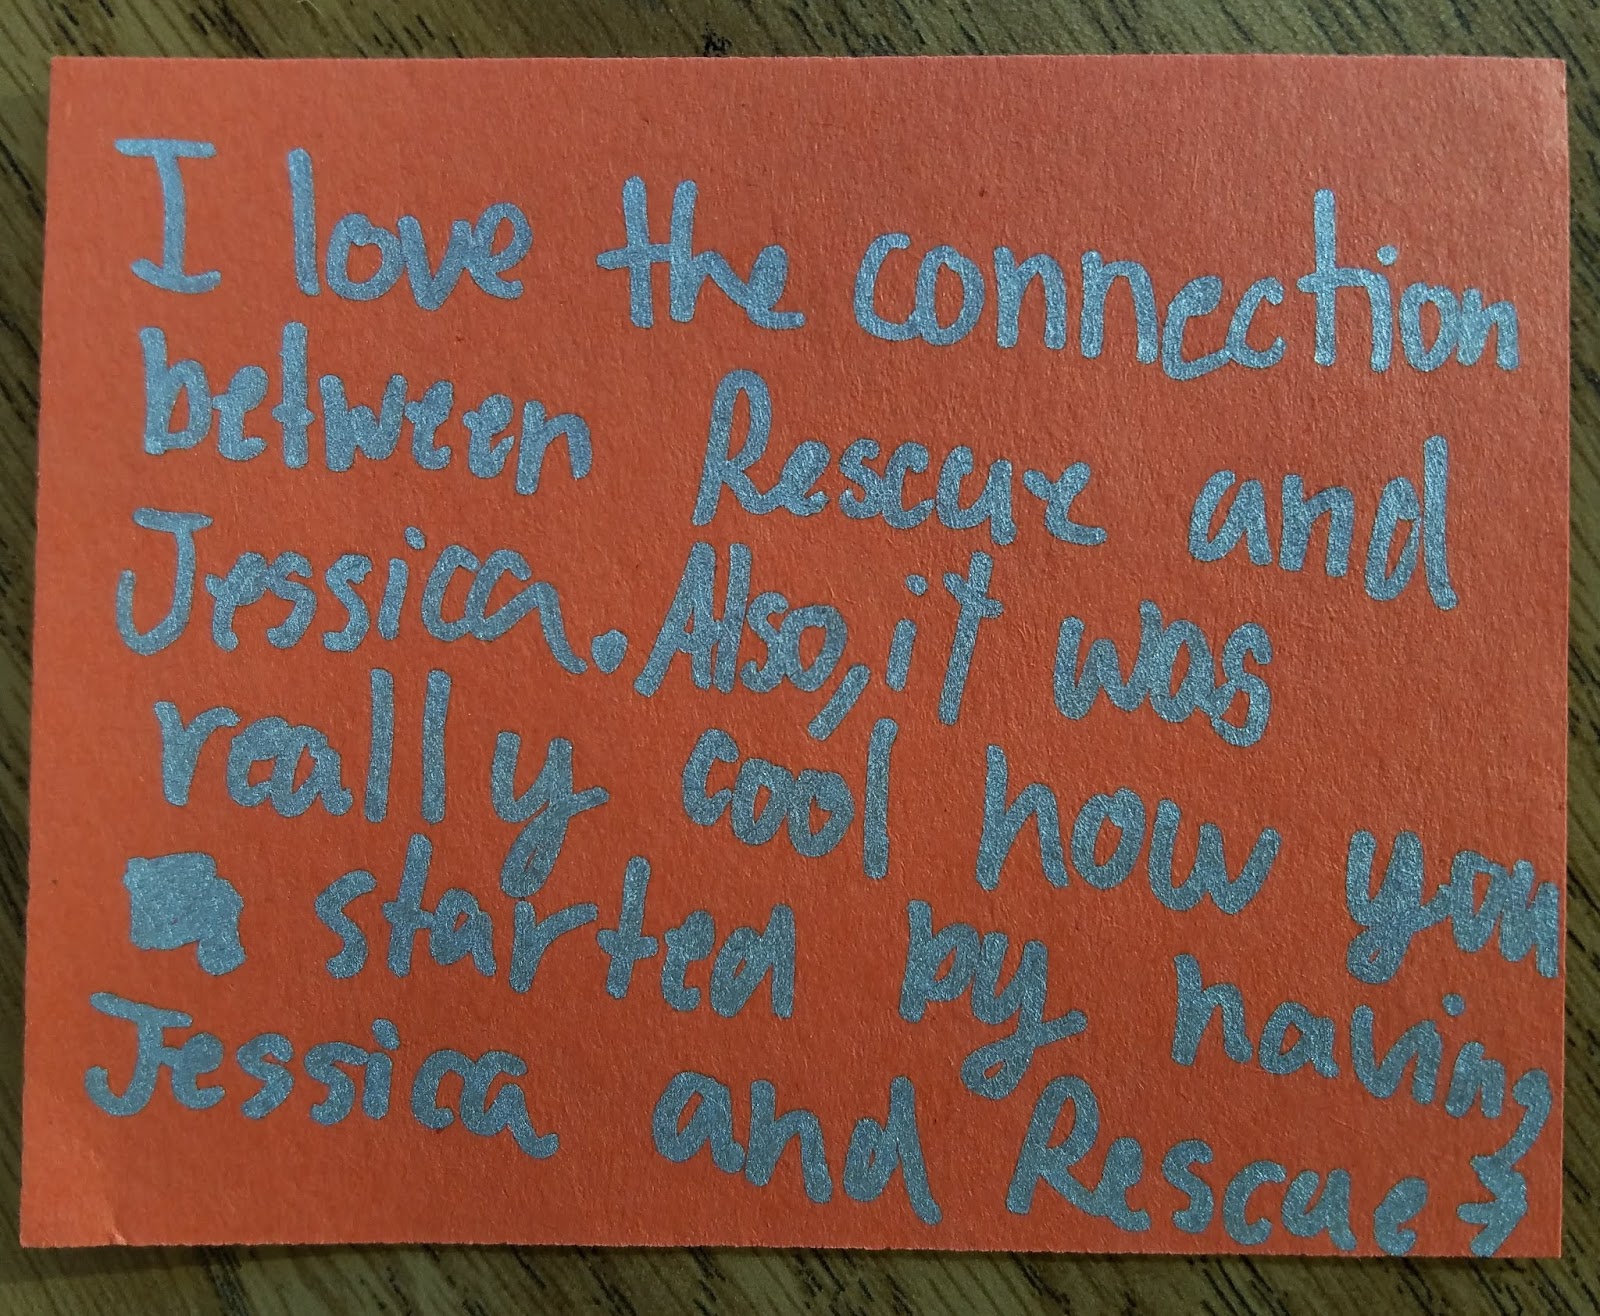 I love the connection
between Rescue and
Jessica. Also, it was
really cool how you
started by having
Jessica and Rescue